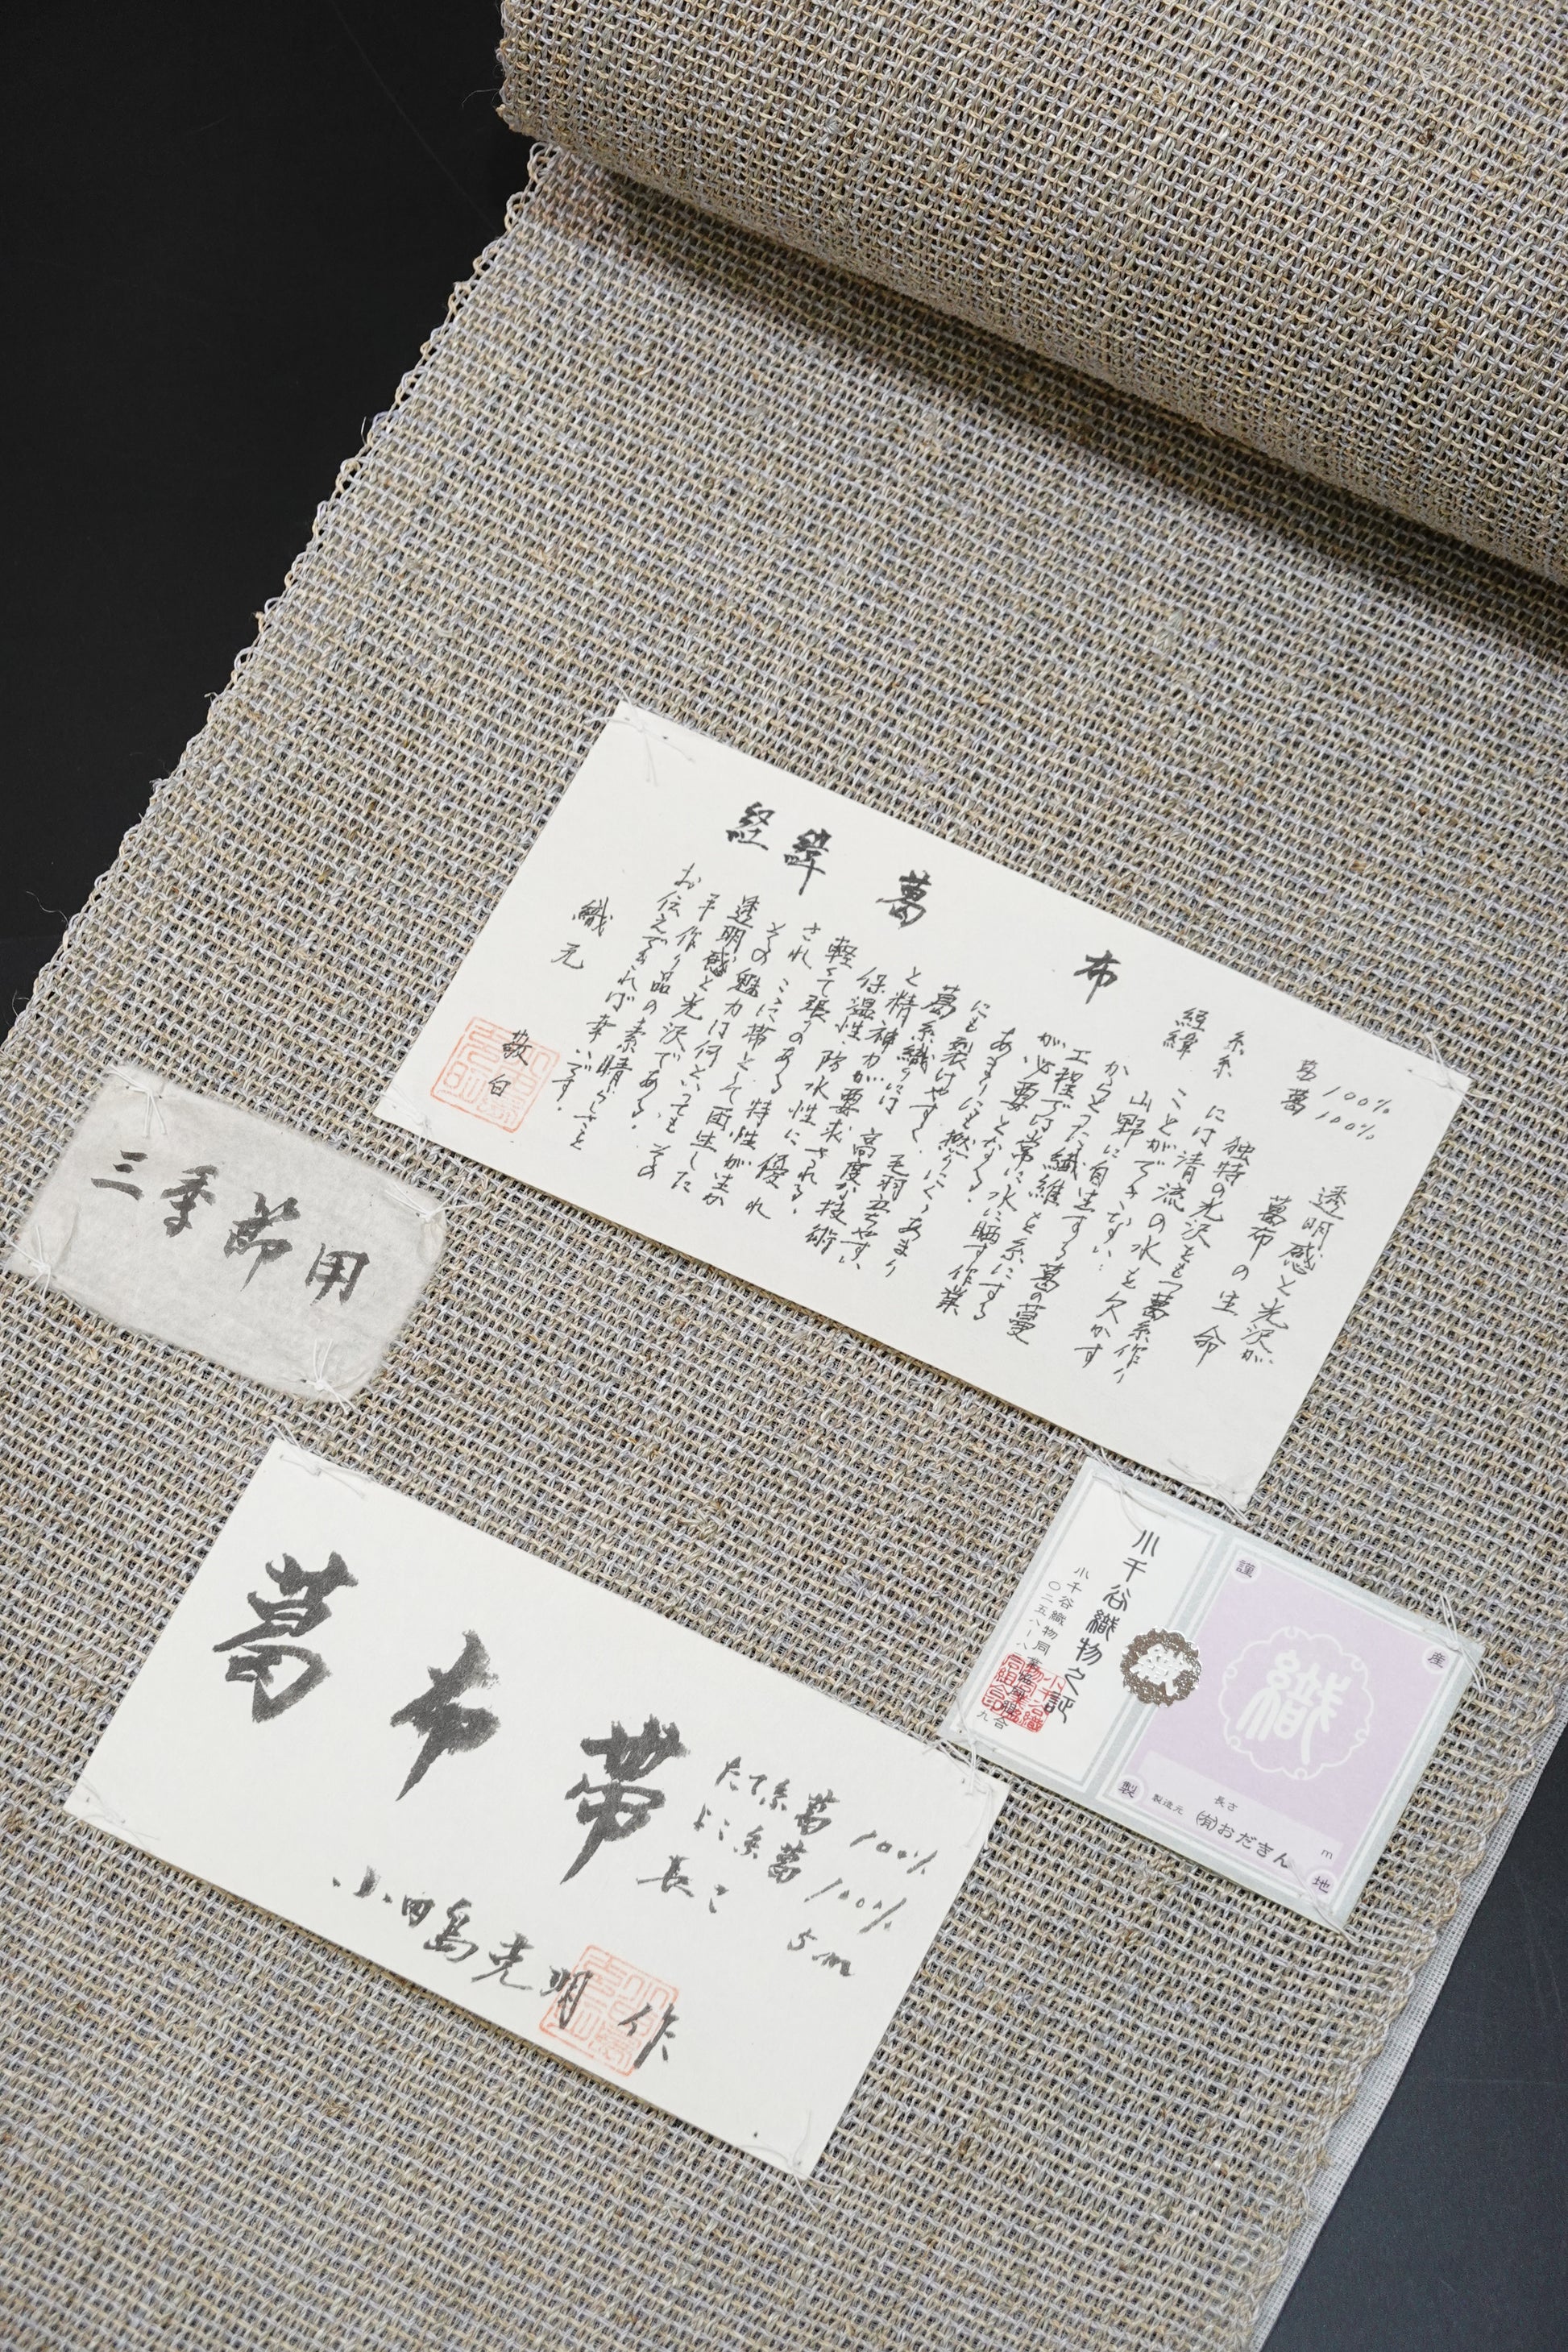 経緯葛布
経糸 葛100%
緯糸 葛100%
透明感と光沢が
葛布の生命
独特の光沢をもつ葛糸作り
には清流の水を欠かす
ことができない。
山野に自生する葛の蔓
からとった繊維を糸にする
工程では常に水に晒す作業
が必要となる。
あまりにも撚りにくくあまり
にも裂けやすく、毛羽立ちやすい
葛糸織りには高度な技術
と精神力が要求される。
保温性、防水性に優れ
軽くて張りのある特性が生か
され ここに帯として再生した
その魅力は何といっても その
透明感と光沢である。
手作り品の素晴しさを
お伝えできれば幸いです。
織元
敬白
三季節用
葛布帯
たて糸葛 100%
よこ糸葛 100%
長さ 5m
小四島克明作
小千谷織物之証
小千谷織物同業協同組合
謹
産
製
地
織
長さ m
製造元 (有)おだきん